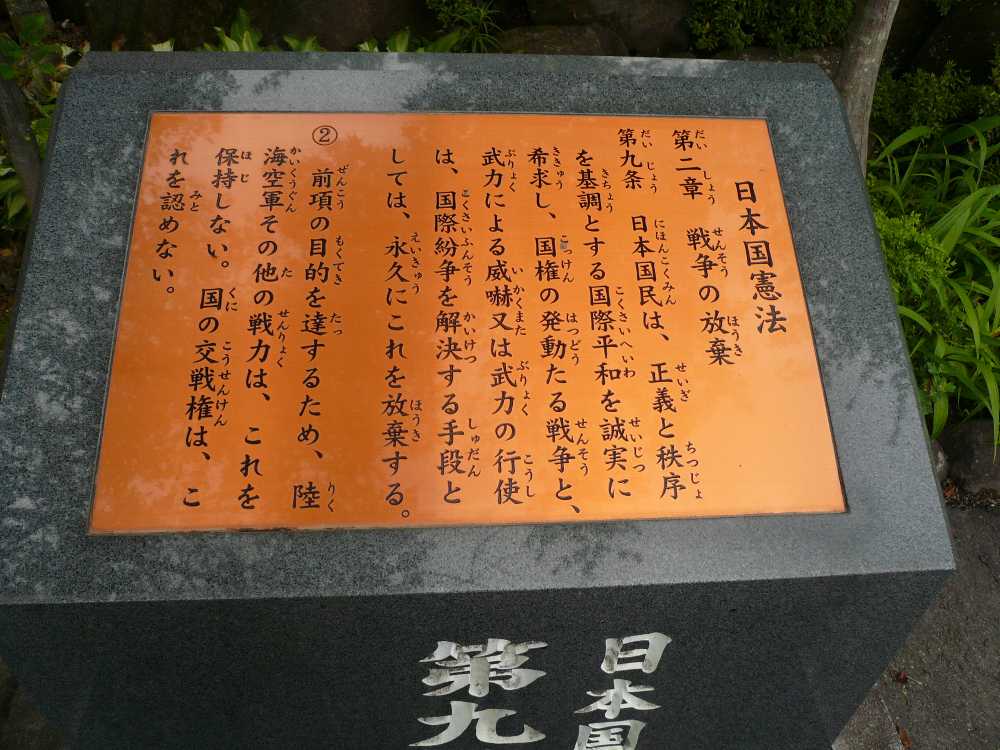 日本国憲法
第二章　戦争の放棄
第九条　日本国民は、正義と秩序
を基調とする国際平和を誠実に
希求し、国権の発動たる戦争と、
武力による威嚇又は武力の行使
は、国際紛争を解決する手段と
しては、永久にこれを放棄する。
②　前項の目的を達するため、陸
海空軍その他の戦力は、これを
保持しない。国の交戦権は、こ
れを認めない。
日本国
第九